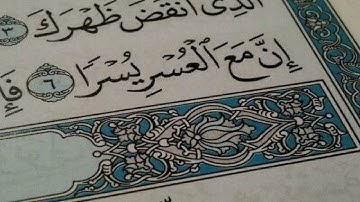 الَّذِى أَنقَضَ ظَهْرَكَ ٣
إِنَّ مَعَ ٱلْعُسْرِ يُسْرًا ٦ فَإِ